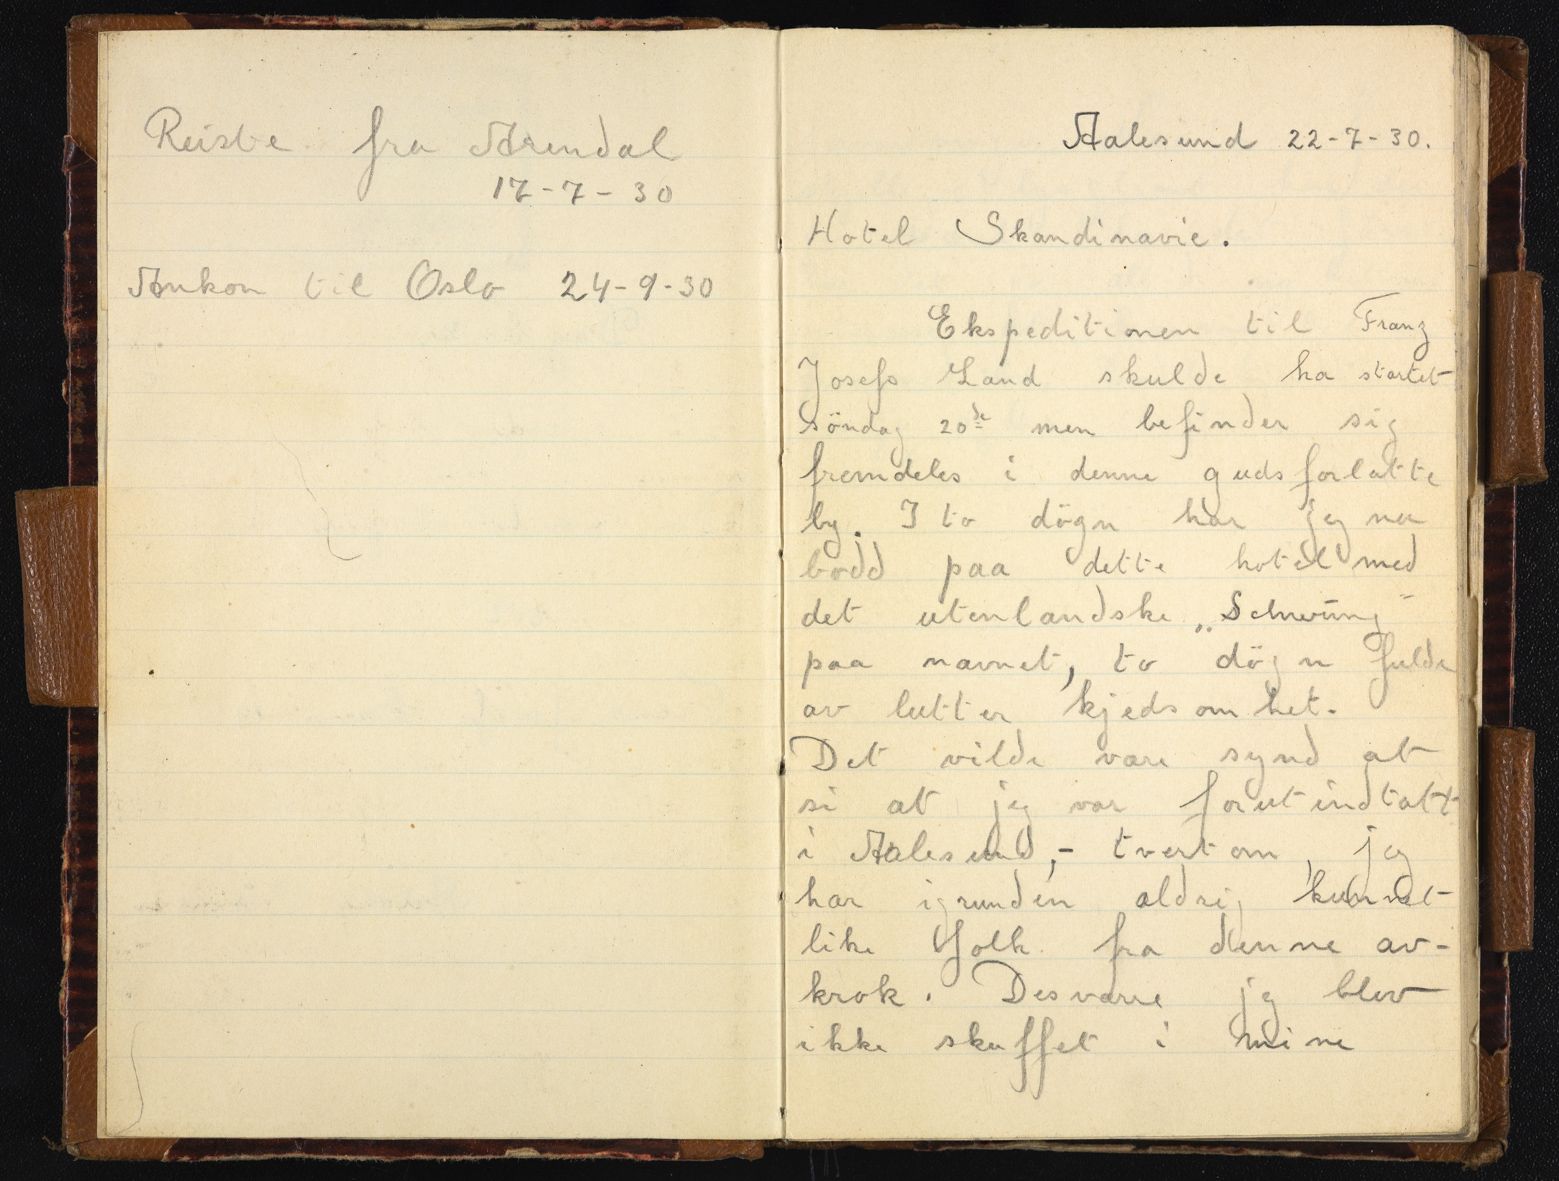 Reiste fra Arendal
17-7-30
Ankom til Oslo 24-9-30
Aalesund 22-7-30.
Hotel Skandinavie.
Ekspeditionen til Franz
Josefs Land skulde ha startet
søndag 20de men befinder sig
fremdeles i denne gudsforlatte
by. I to døgn har jeg nu
bodd paa dette hotel med
det utenlandske „Schwung"
paa navnet, to døgn fulde
av lutter kjedsomhet.
Det vilde være synd at
si at jeg var forutindtatt
i Aalesund,- tvertom, jeg
har igrunden aldrig kunnet
like folk fra denne av-
krok. Desværre jeg blev
ikke skuffet i mine